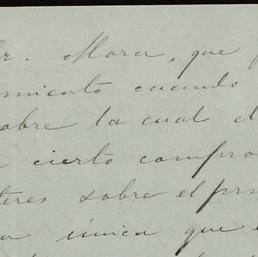 Sr. Mora, que
miento cuando
sobre la cual el
cierto compro
teres sobre el pri
a única que e